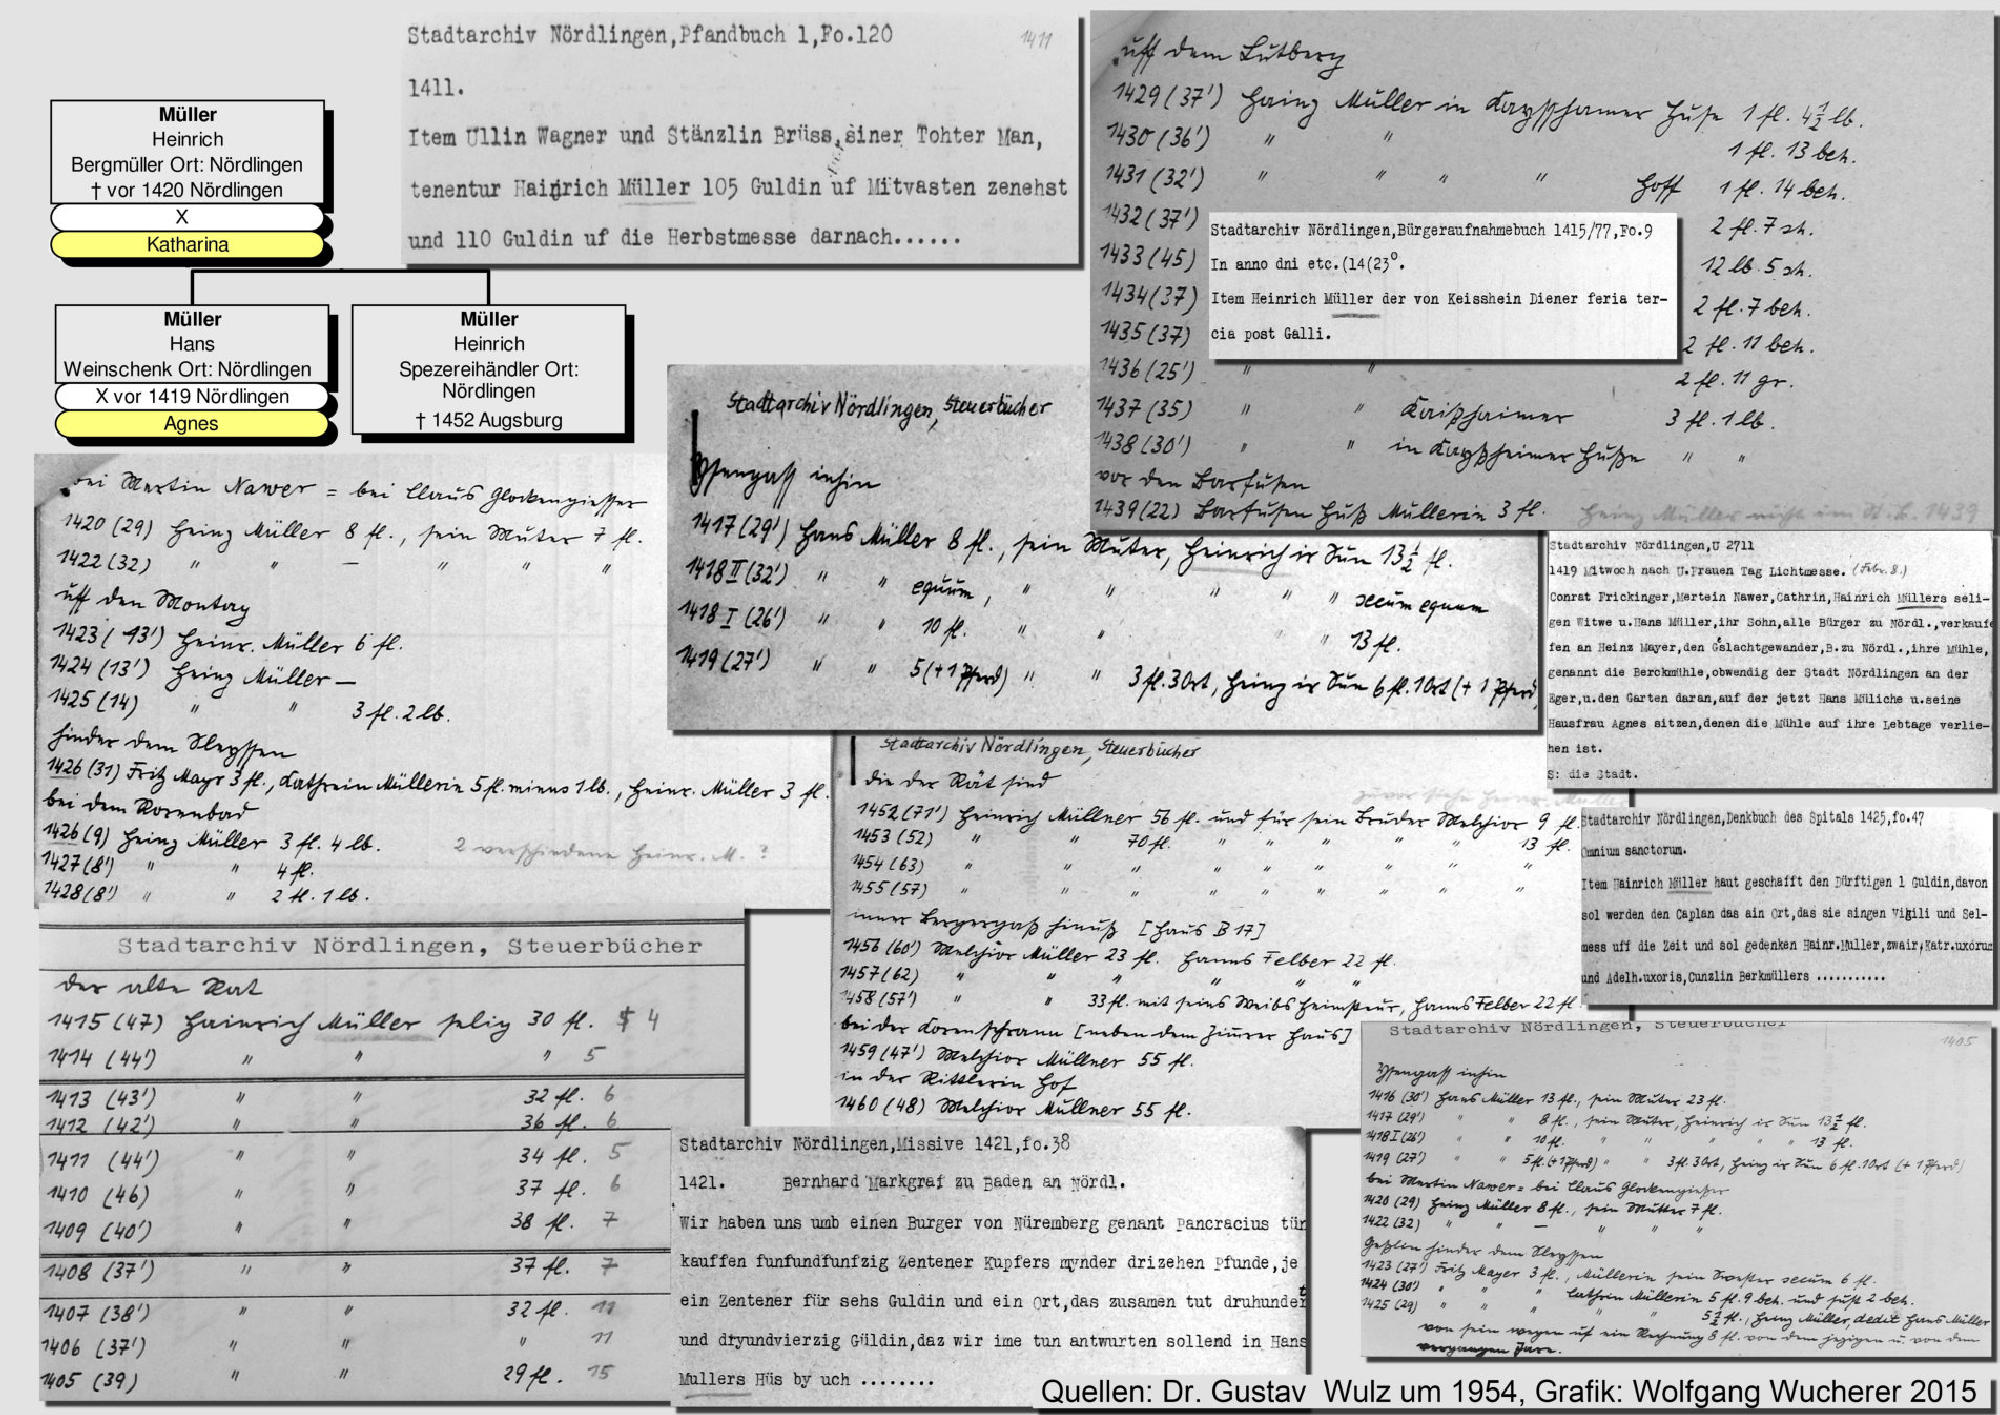 Müller
Heinrich
Bergmüller Ort: Nördlingen
† vor 1420 Nördlingen
X
Katharina
Müller
Hans
Weinschenk Ort: Nördlingen
X vor 1419 Nördlingen
Agnes
Müller
Heinrich
Spezereihändler Ort:
Nördlingen
† 1452 Augsburg
Stadtarchiv Nördlingen,Pfandbuch 1,Fo.120
1411
1411.
Item Ullin Wagner und Stänzlin Brüss,siner Tohter Man,
tenentur Hainrich Müller 105 Guldin uf Mitvasten zenehst
und 110 Guldin uf die Herbstmesse darnach......
uff dem Lutberg
1429 (37') Hainz Müller in Kaysshamer Huse 1 fl. 4½ lb.
1430 (36') " " 1 fl. 13 beh.
1431 (32') " " " " Hoff 1 fl. 14 beh.
1432 (37') 2 fl. 7 sh.
1433 (45) 12 lb. 5 sh.
1434 (37) 2 fl. 7 beh.
1435 (37) 2 fl. 11 beh.
1436 (25') " " 2 fl. 11 gr.
1437 (35) " " Kaißhaimer 3 fl. 1 lb.
1438 (30') " " in Kayßheimer Huße " "
vor den Barfusen
1439 (22) Barfusen Huß Müllerin 3 fl. Heinz Müller nicht im St.b. 1439
Stadtarchiv Nördlingen,Bürgeraufnahmebuch 1415/77,Fo.9
In anno dni etc.(14(23°.
Item Heinrich Müller der von Keisshein Diener feria ter-
cia post Galli.
Stadtarchiv Nördlingen, Steuerbücher
Ysengass inhin
1417 (29') Hans Müller 8 fl., sein Muter, Heinrich ir Sun 13½ fl.
1418 II (32') " " equum, " " " " " secum equum
1418 I (26') " " 10 fl. " " " " 13 fl.
1419 (27') " " 5 (+1 Pferd) " " 3 fl. 3 Ort, Heinz ir Sun 6 fl. 1 Ort (+ 1 Pferd
bei Martin Nawer = bei Claus Glockengiesser
1420 (29) Heinz Müller 8 fl., sein Muter 7 fl.
1422 (32) " " — " " "
uff den Montag
1423 (13') Heinr. Müller 6 fl.
1424 (13') Heinz Müller —
1425 (14) " " 3 fl. 2 lb.
hinder dem Sleyssen
1426 (31) Fritz Mayr 3 fl., Kathrein Müllerin 5 fl. minus 1 lb., Heinr. Müller 3 fl.
bei dem Rosenbad
1426 (9) Heinz Müller 3 fl. 4 lb. 2 verschiedene Heinr. M. ?
1427 (8') " " 4 fl.
1428 (8') " " 2 fl. 1 lb.
Stadtarchiv Nördlingen,U 2711
1419 Mitwoch nach U.Frauen Tag Lichtmesse. (Febr. 8.)
Conrat Frickinger,Mertein Nawer,Cathrin,Hainrich Müllers seli-
gen Witwe u.Hans Müller,ihr Sohn,alle Bürger zu Nördl.,verkau
fen an Heinz Mayer,den Gslachtgewander,B.zu Nördl.,ihre Mühle,
genannt die Berckmühle,obwendig der Stadt Nördlingen an der
Eger,u.den Garten daran,auf der jetzt Hans Müliche u.seine
Hausfrau Agnes sitzen,denen die Mühle auf ihre Lebtage verlie-
hen ist.
S: die Stadt.
Stadtarchiv Nördlingen, Steuerbücher
die der Rät sind
1452 (71') Heinrich Müllner 56 fl. und für sein Bruder Melchior 9 fl.
1453 (52) " " 70 fl. " " " " " 13 fl.
1454 (63) " " " " " " " " "
1455 (57) " " " " " " " " "
inner Bergergaß hinuß [Haus B 17]
1456 (60') Melchior Müller 23 fl. Hanns Felber 22 fl.
1457 (62) " " " " "
1458 (57') " " 33 fl. mit seins Weibs Heimsteur, Hanns Felber 22 fl
bei der Korenschrann [neben dem Zimrer Haus]
1459 (47') Melchior Müllner 55 fl.
in der Rittlerin Hof
1460 (48) Melchior Müllner 55 fl.
Stadtarchiv Nördlingen,Denkbuch des Spitals 1425,fo.47
Omnium sanctorum.
Item Hainrich Müller haut geschafft den Dürftigen 1 Guldin,davon
sol werden den Caplan das ain Ort,das sie singen Vigili und Sel-
mess uff die Zeit und sol gedenken Hainr.Muller,zwair,Katr.uxorum
und Adelh.uxoris,Cunzlin Berkmüllers ...........
Stadtarchiv Nördlingen, Steuerbücher
der alte Rat
1415 (47) Hainrich Müller selig 30 fl. 4
1414 (44') " " " 5
1413 (43') " " 32 fl. 6
1412 (42') " " 36 fl. 6
1411 (44') " " 34 fl. 5
1410 (46) " " 37 fl. 6
1409 (40') " " 38 fl. 7
1408 (37') " " 37 fl. 7
1407 (38') " " 32 fl. 11
1406 (37') " " " 11
1405 (39) " " 29 fl. 15
Stadtarchiv Nördlingen,Missive 1421,fo.38
1421. Bernhard Markgraf zu Baden an Nördl.
Wir haben uns umb einen Burger von Nüremberg genant Pancracius tür
kauffen funfundfunfzig Zentener Kupfers mynder drizehen Pfunde,je
ein Zentener für sehs Guldin und ein Ort,das zusamen tut druhundert
und dryundvierzig Güldin,daz wir ime tun antwurten sollend in Hans
Mullers Hüs by uch ........
Stadtarchiv Nördlingen, Steuerbücher
1405
Ysengass inhin
1416 (30') Hans Müller 13 fl., sein Muter 23 fl.
1417 (29') " " 8 fl., sein Muter, Heinrich ir Sun 13½ fl.
1418 I (26') " " 10 fl. " " " " " 13 fl.
1419 (27') " " 5 fl. (+1 Pferd) " " 3 fl. 3 Ort, Heinz ir Sun 6 fl. 1 Ort (+ 1 Pferd)
bei Martin Nawer = bei Claus Glockengießer
1420 (29) Heinz Müller 8 fl., sein Mutter 7 fl.
1422 (32) " " — " "
Geßlin hinder dem Sleyssen
1423 (27') Fritz Mayer 3 fl., Müllerin sein Swester secum 6 fl.
1424 (30') " " " Cathrin Müllerin 5 fl. 9 beh. und sust 2 beh.
1425 (29) " " " " 5½ fl., Heinz Müller, dedit Hans Müller
von sein wegen uf ein Rechnung 8 fl. von dem jezigen u. von dem
vergangen Jare.
Quellen: Dr. Gustav Wulz um 1954, Grafik: Wolfgang Wucherer 2015